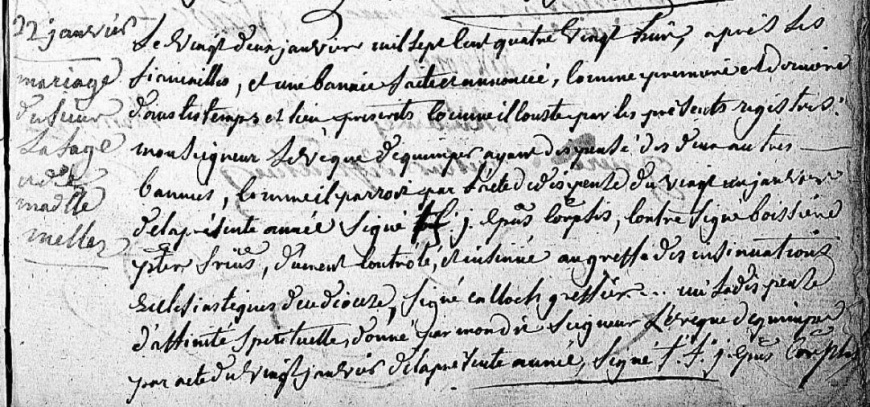 22 janvier
mariage
du sieur
Lasage
et de
madlle
mellez
Le vingt deux janvier mil sept cent quatre vingt huit, après les
fiancailles, et une bannie faite et annoncée, comme premiere et derniere
dans les temps et lieu presents comme il conste par les présents registres:
monseigneur Levêque de quimper ayant dispensé des deux autres
bannies, comme il paroit par l'acte de dispense du vingt un janvier
de la présente année signé t. f. j. Epus Corpitis, contre signé boissiere
pter srius, duement controlé, et insinué au greffe des insinuations
Ecclesiastiques du diocese, signé calloch greffier.. vu la dispense
d'affinité spirituelle, donné par mon dit Seigneur Levêque de quimper
par acte du vingt janvier de la presente année, signé t. f. j. Epus Corpitis